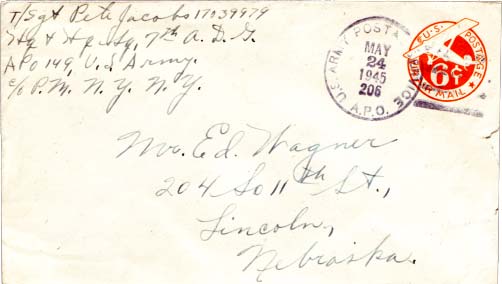 T/Sgt Pete Jacobs 17039979
Hq & Hq Sq, 7th A.D.G.
APO 149, U.S. Army.
c/o P.M. N.Y. N.Y.
U.S. ARMY POSTAL SERVICE
MAY
24
1945
206
A.P.O.
U.S. POSTAGE
6¢
AIR MAIL
Mr. Ed. Wagner
204 So 11th St.,
Lincoln,
Nebraska.